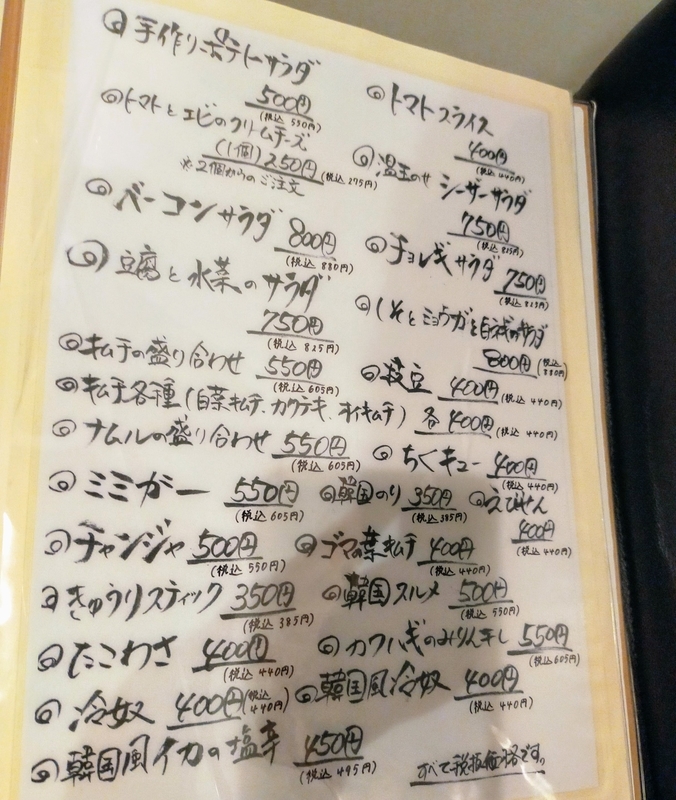 ◎手作りポテトサラダ
500円
(税込 550円)
◎トマトとエビのクリームチーズ
(1個) 250円
(税込 275円)
※2個からのご注文
◎ベーコンサラダ
800円
(税込 880円)
◎豆腐と水菜のサラダ
750円
(税込 825円)
◎キムチの盛り合わせ 550円
(税込 605円)
◎キムチ各種(白菜キムチ、カクテキ、オイキムチ) 各400円
(税込 440円)
◎ナムルの盛り合わせ 550円
(税込 605円)
◎ミミガー 550円
(税込 605円)
◎チャンジャ 500円
(税込 550円)
◎きゅうりスティック 350円
(税込 385円)
◎たこわさ 400円
(税込 440円)
◎冷奴 400円
(税込 440円)
◎韓国風イカの塩辛 450円
(税込 495円)
◎トマトスライス
400円
(税込 440円)
◎温玉のせシーザーサラダ
750円
(税込 825円)
◎チョレギサラダ 750円
(税込 825円)
◎しそとミョウガと白ネギのサラダ
800円
(税込 880円)
◎枝豆 400円
(税込 440円)
◎ちくキュー 400円
(税込 440円)
◎韓国のり 350円
(税込 385円)
◎えびせん
400円
(税込 440円)
◎ゴマの葉キムチ 400円
(税込 440円)
◎韓国スルメ 500円
(税込 550円)
◎カワハギのみりん干し 550円
(税込 605円)
◎韓国風冷奴 400円
(税込 440円)
すべて税抜価格です。